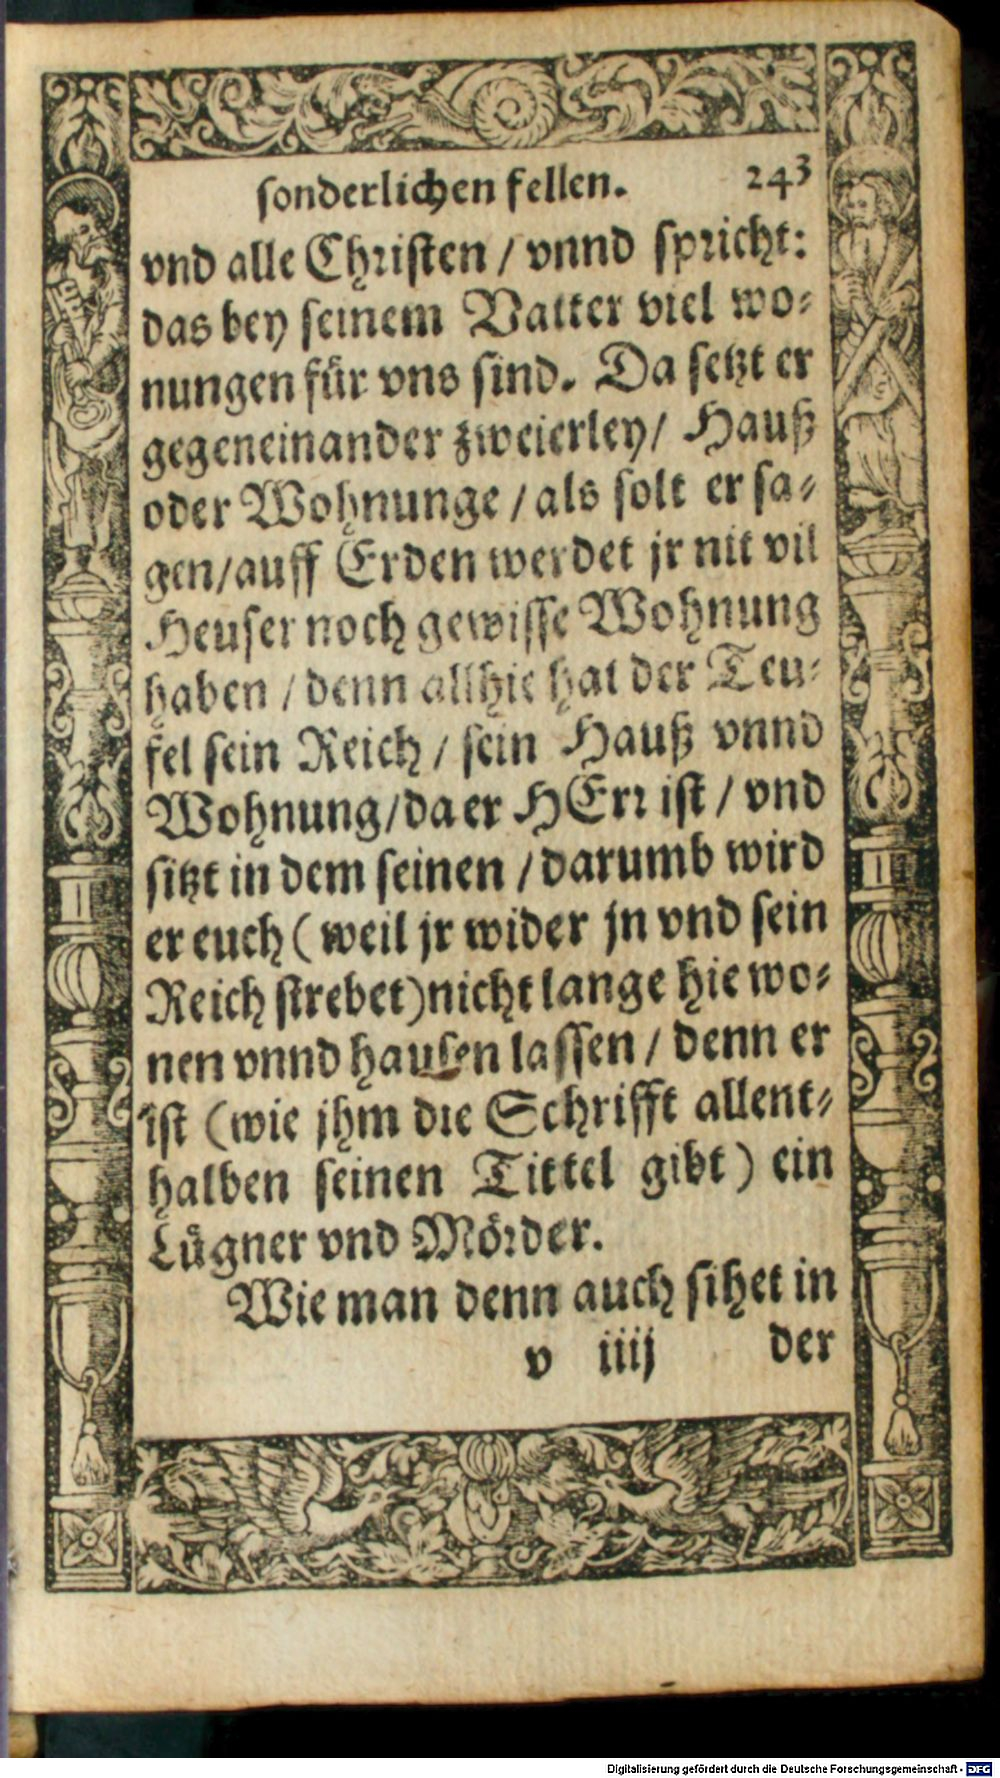 sonderlichen fellen. 243
vnd alle Christen / vnnd spricht:
das bey seinem Vatter viel wo⸗
nungen für vns sind. Da setzt er
gegeneinander zweierley / Hauß
oder Wohnunge / als solt er sa⸗
gen / auff Erden werdet jr nit vil
Heuser noch gewisse Wohnung
haben / denn allhie hat der Teu⸗
fel sein Reich / sein Hauß vnnd
Wohnung / da er HErr ist / vnd
sitzt in dem seinen / darumb wird
er euch ( weil jr wider jn vnd sein
Reich strebet) nicht lange hie wo⸗
nen vnnd hausen lassen / denn er
ist (wie jhm die Schrifft allent⸗
halben seinen Tittel gibt) ein
Lůgner vnd Mörder.
Wie man denn auch sihet in
v iiij der
Digitalisierung gefördert durch die Deutsche Forschungsgemeinschaft - DFG